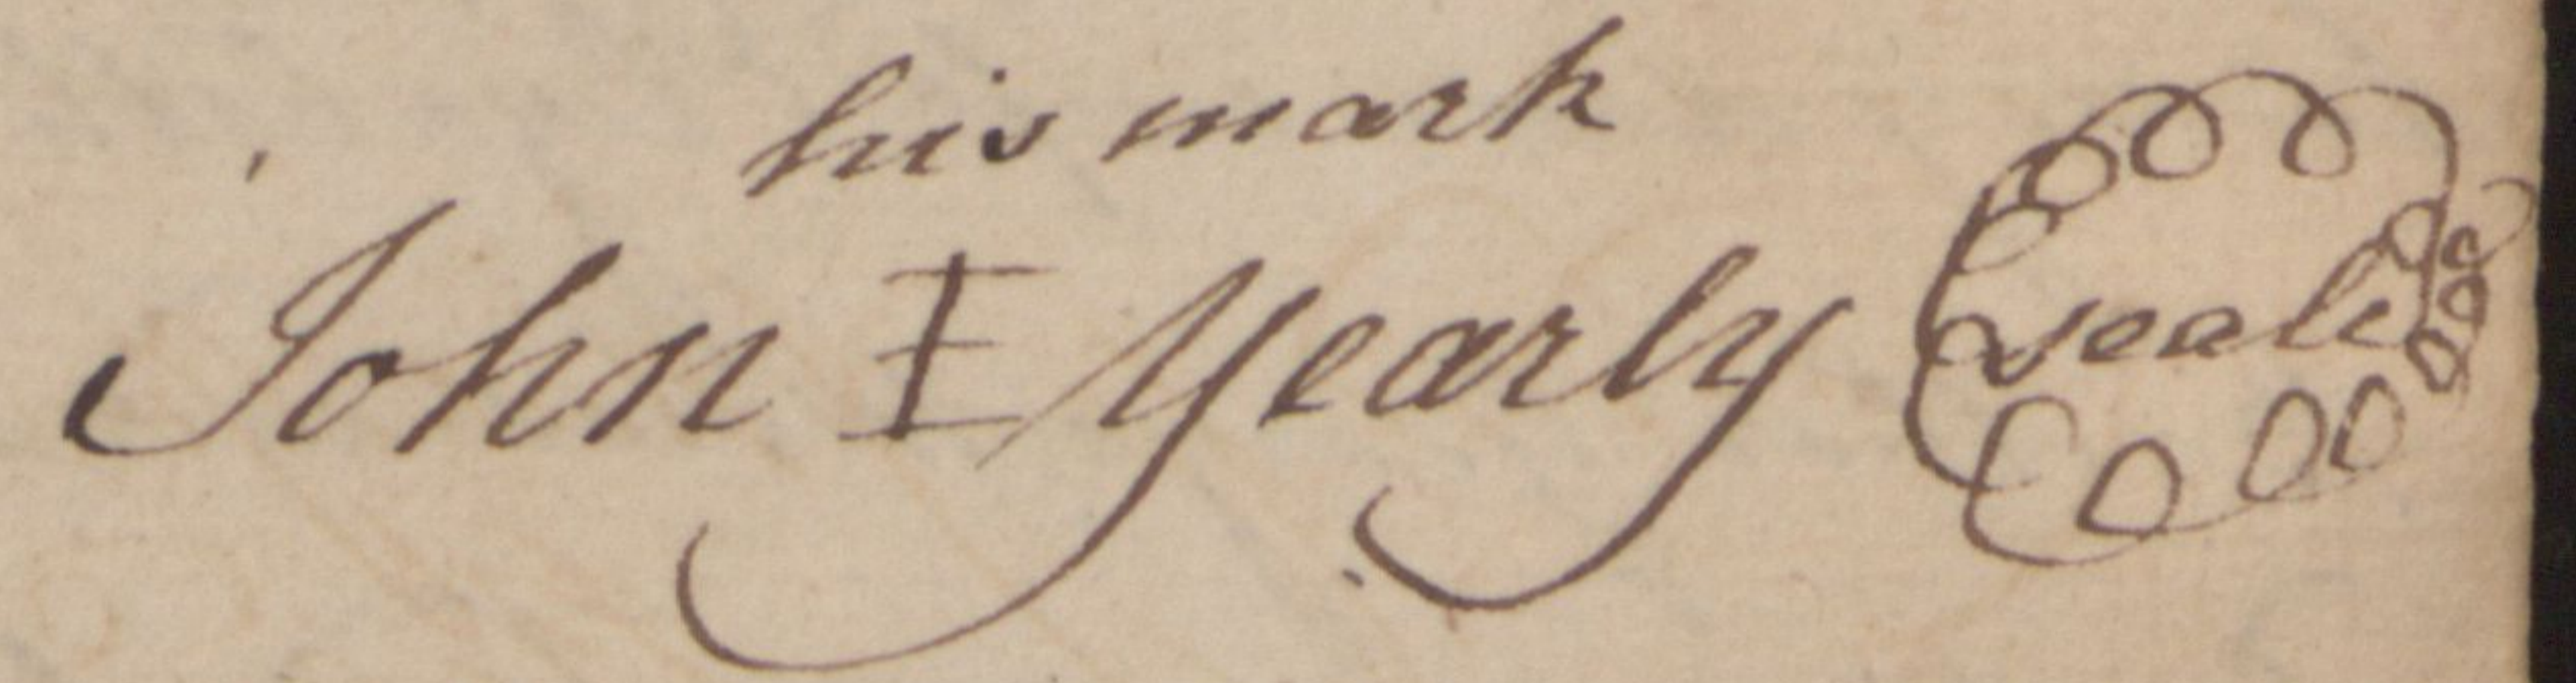 his mark
John I Yearly seale